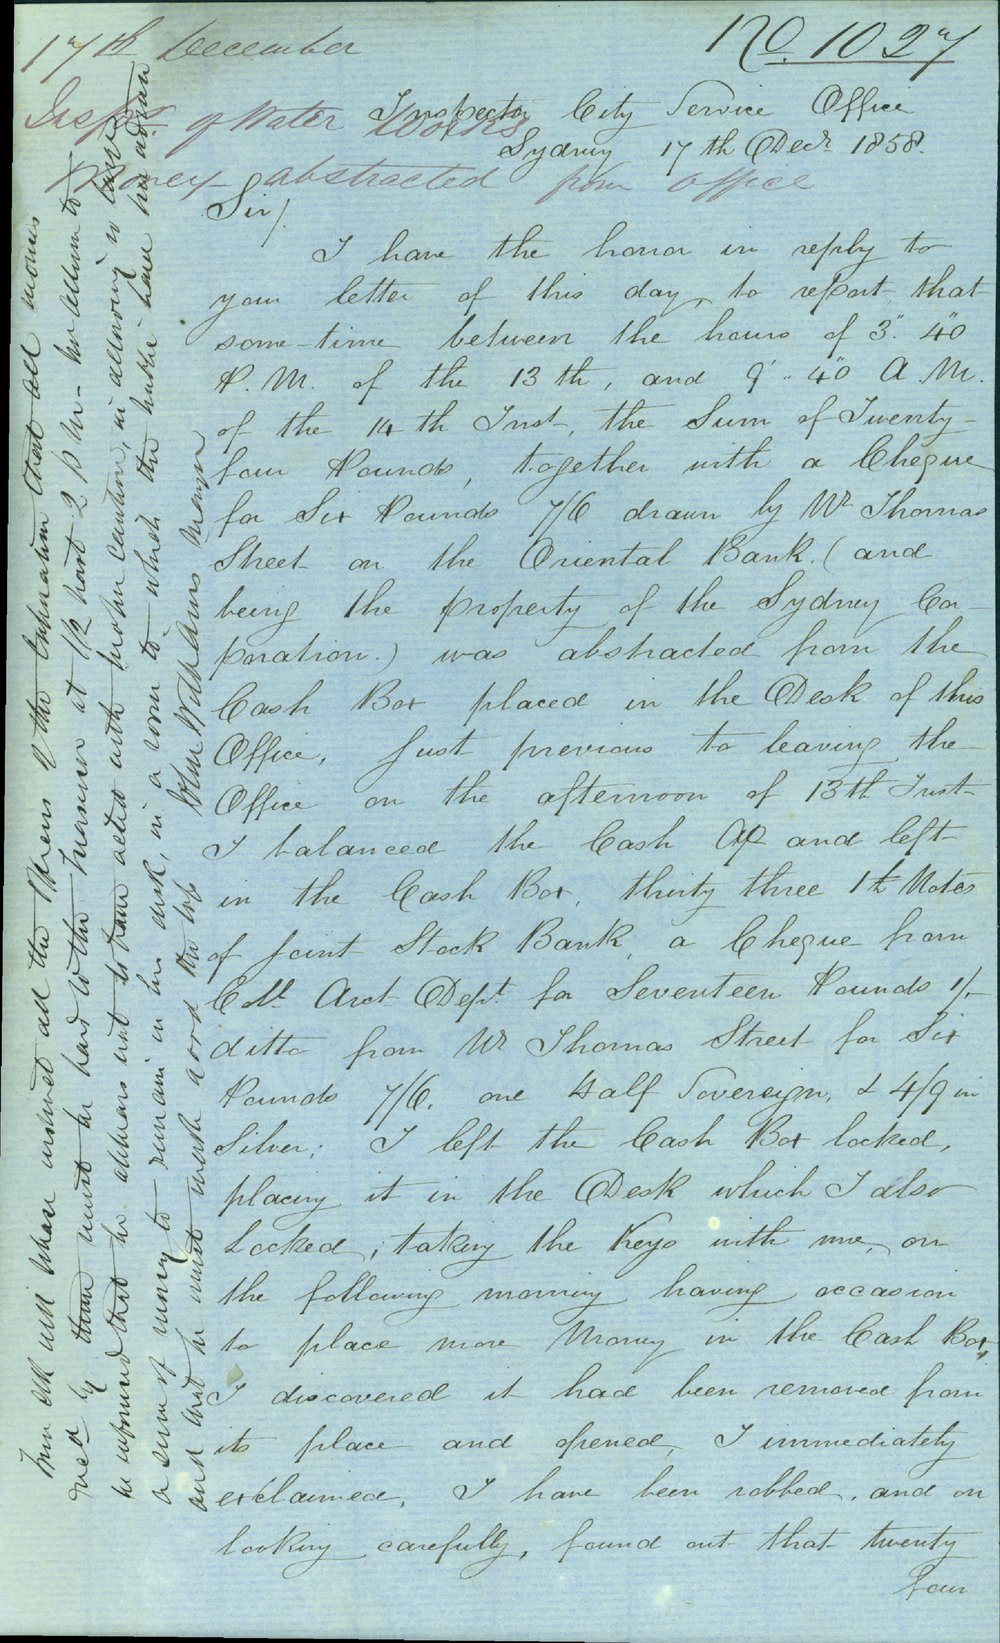 17th December
No. 1027
Inspr. of Water Works
Money abstracted from office
Inspector City Service Office
Sydney 17th Decr. 1858.
Sir/
I have the honor in reply to
your letter of this day, to report that
some-time between the hours of 3"40
P.M. of the 13th, and 9"40 A.M.
of the 14th Inst, the Sum of Twenty-
four Pounds, together with a Cheque
for Six Pounds 7/6 drawn by Mr Thomas
Street on the Oriental Bank. (and
being the property of the Sydney Cor-
poration.) was abstracted from the
Cash Box placed in the Desk of this
Office, Just previous to leaving the
Office on the afternoon of 13th Inst
I balanced the Cash A/c and left
in the Cash Box, thirty three 1£ Notes
of Joint Stock Bank, a Cheque from
Coll. Arct Dept. for Seventeen Pounds 1/-
ditto from Mr Thomas Street for Six
Pounds 7/6. one Half Sovereign, & 4/9 in
Silver; I left the Cash Box locked,
placing it in the Desk which I also
Locked; taking the Keys with me, on
the following morning having occasion
to place more Money in the Cash Box,
I discovered it had been removed from
its place and opened, I immediately
exclaimed, I have been robbed, and on
looking carefully, found out that twenty
four
will please instruct all the Officers of the Corporation that all monies
recd by them must be paid to the Treasurer at 1/2 past 2 P M -
be informed that he appears not to have acted with proper caution, in allowing so large
a sum of money to remain in his desk, in a room to which the public have had access
and that he must make good the loss